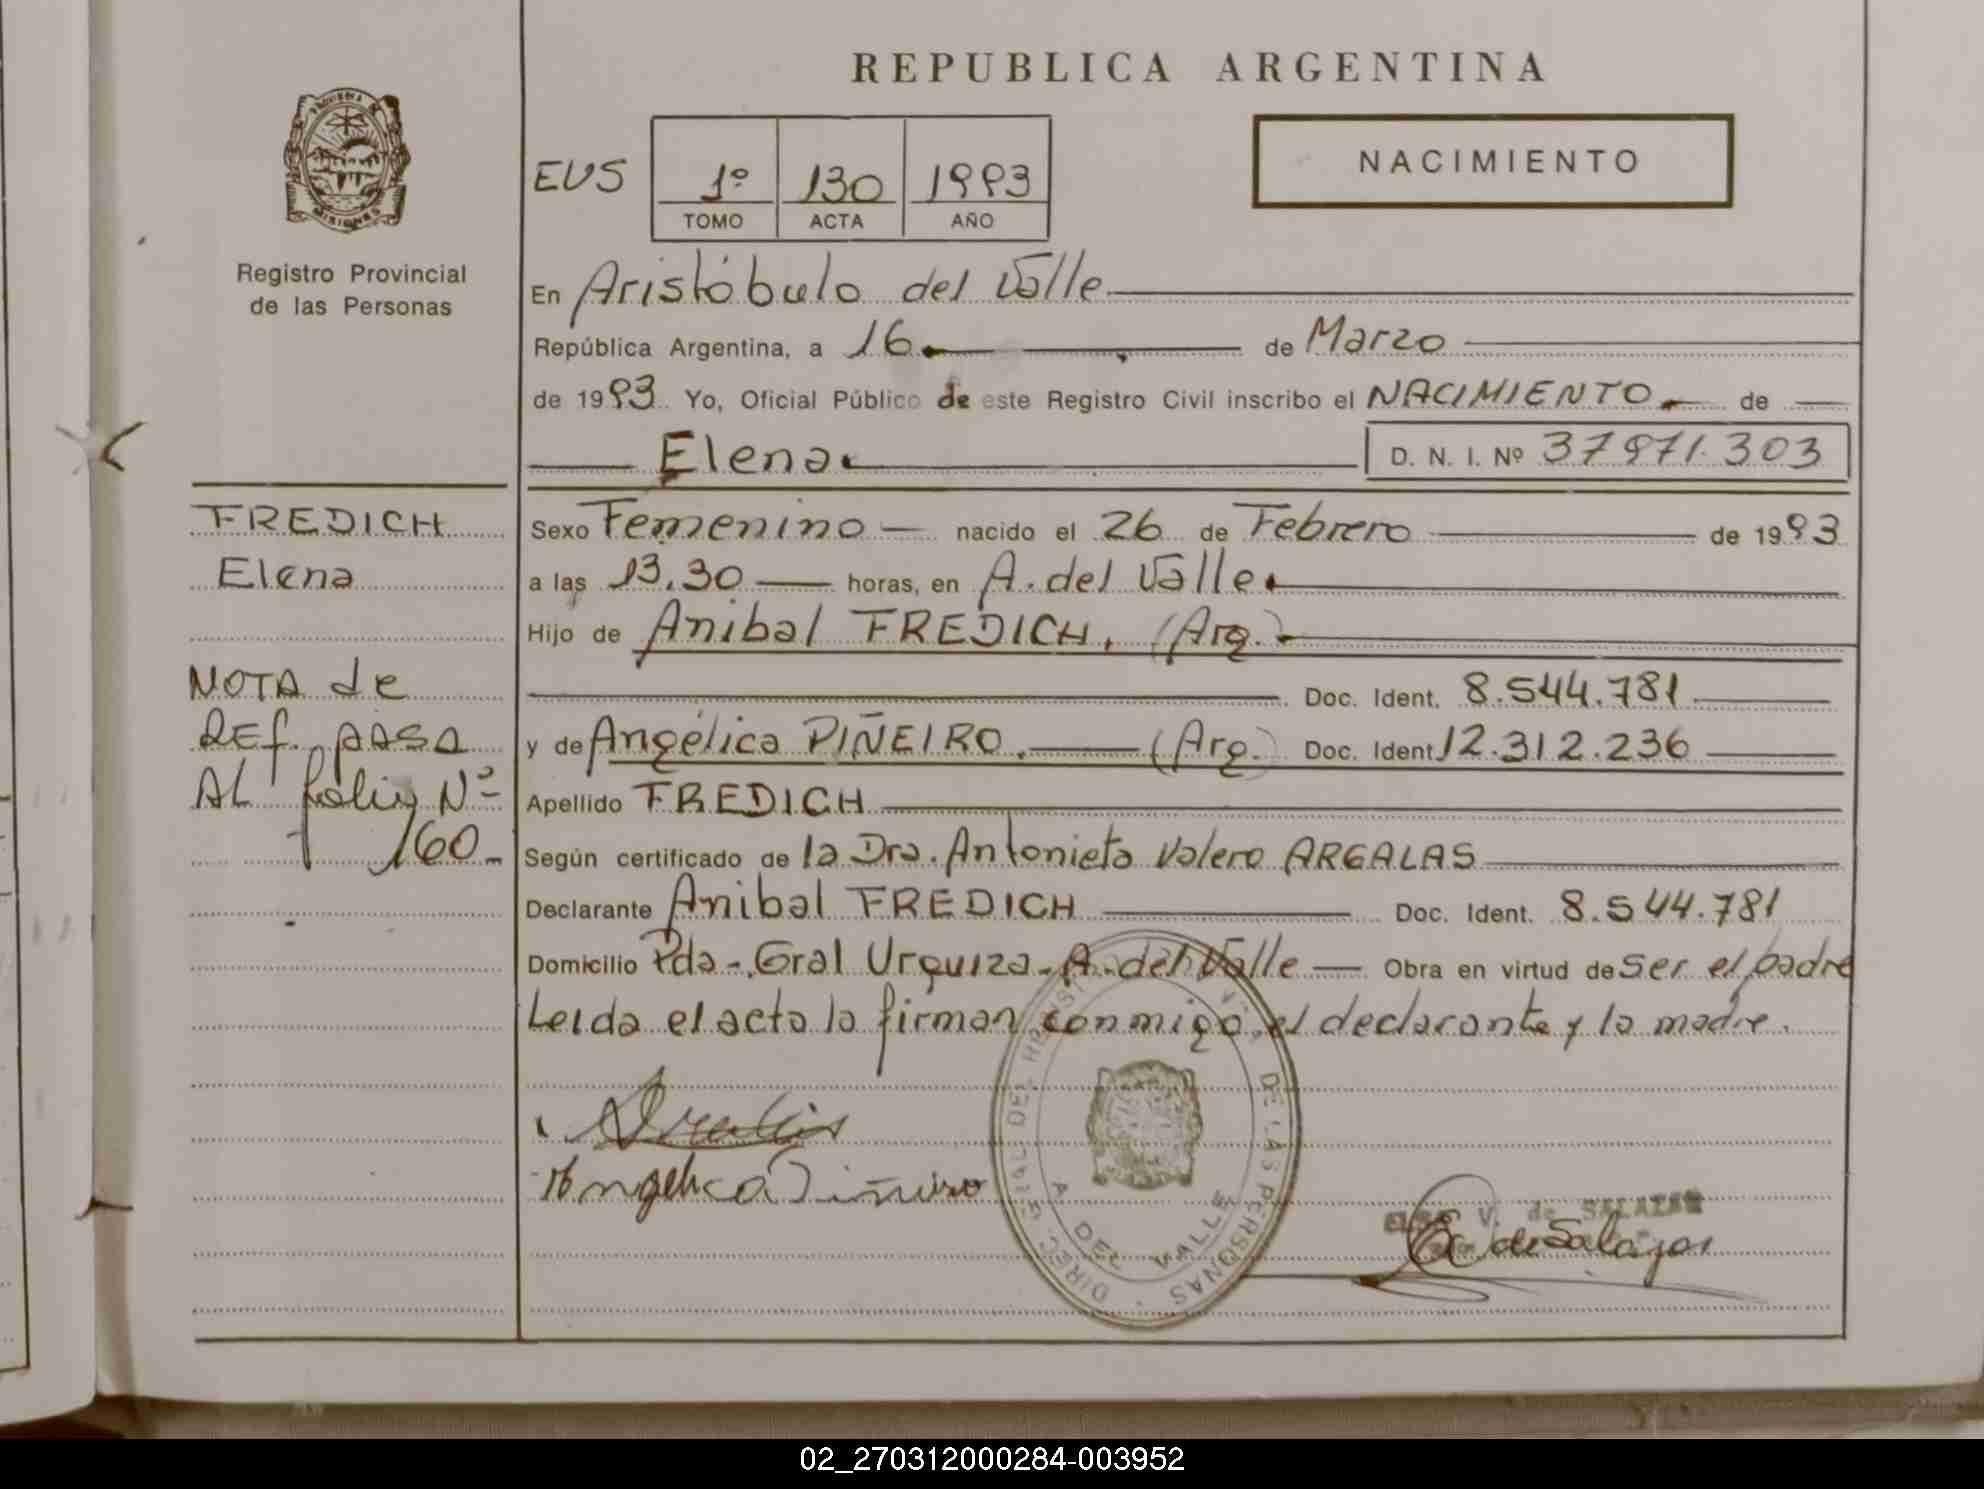 REPUBLICA ARGENTINA
PROVINCIA DE
MISIONES
Registro Provincial
de las Personas
EUS
1º 130 1993
TOMO ACTA AÑO
NACIMIENTO
En Aristóbulo del Valle
República Argentina, a 16 de Marzo
de 1993 Yo, Oficial Público de este Registro Civil inscribo el NACIMIENTO de
Elena D. N. I. Nº 37971.303
FREDICH
Elena
NOTA de
REf. pasa
AL folio Nº
160
Sexo Femenino nacido el 26 de Febrero de 1993
a las 13.30 horas, en A. del Valle
Hijo de Anibal FREDICH, (Arg.)
Doc. Ident. 8.544.781
y de Angélica PIÑEIRO. (Arg.) Doc. Ident. 12.312.236
Apellido FREDICH
Según certificado de la Dra. Antonieta Valero ARGALAS
Declarante Anibal FREDICH Doc. Ident. 8.544.781
Domicilio Pda-. Gral Urquiza-A. del Valle Obra en virtud de ser el padre
Leída el acta la firman conmigo el declarante y la madre.
Angelica Piñeiro
V. de SALAZAR
E. de Salazar
DE LAS PERSONAS
A. DEL VALLE
02_270312000284-003952